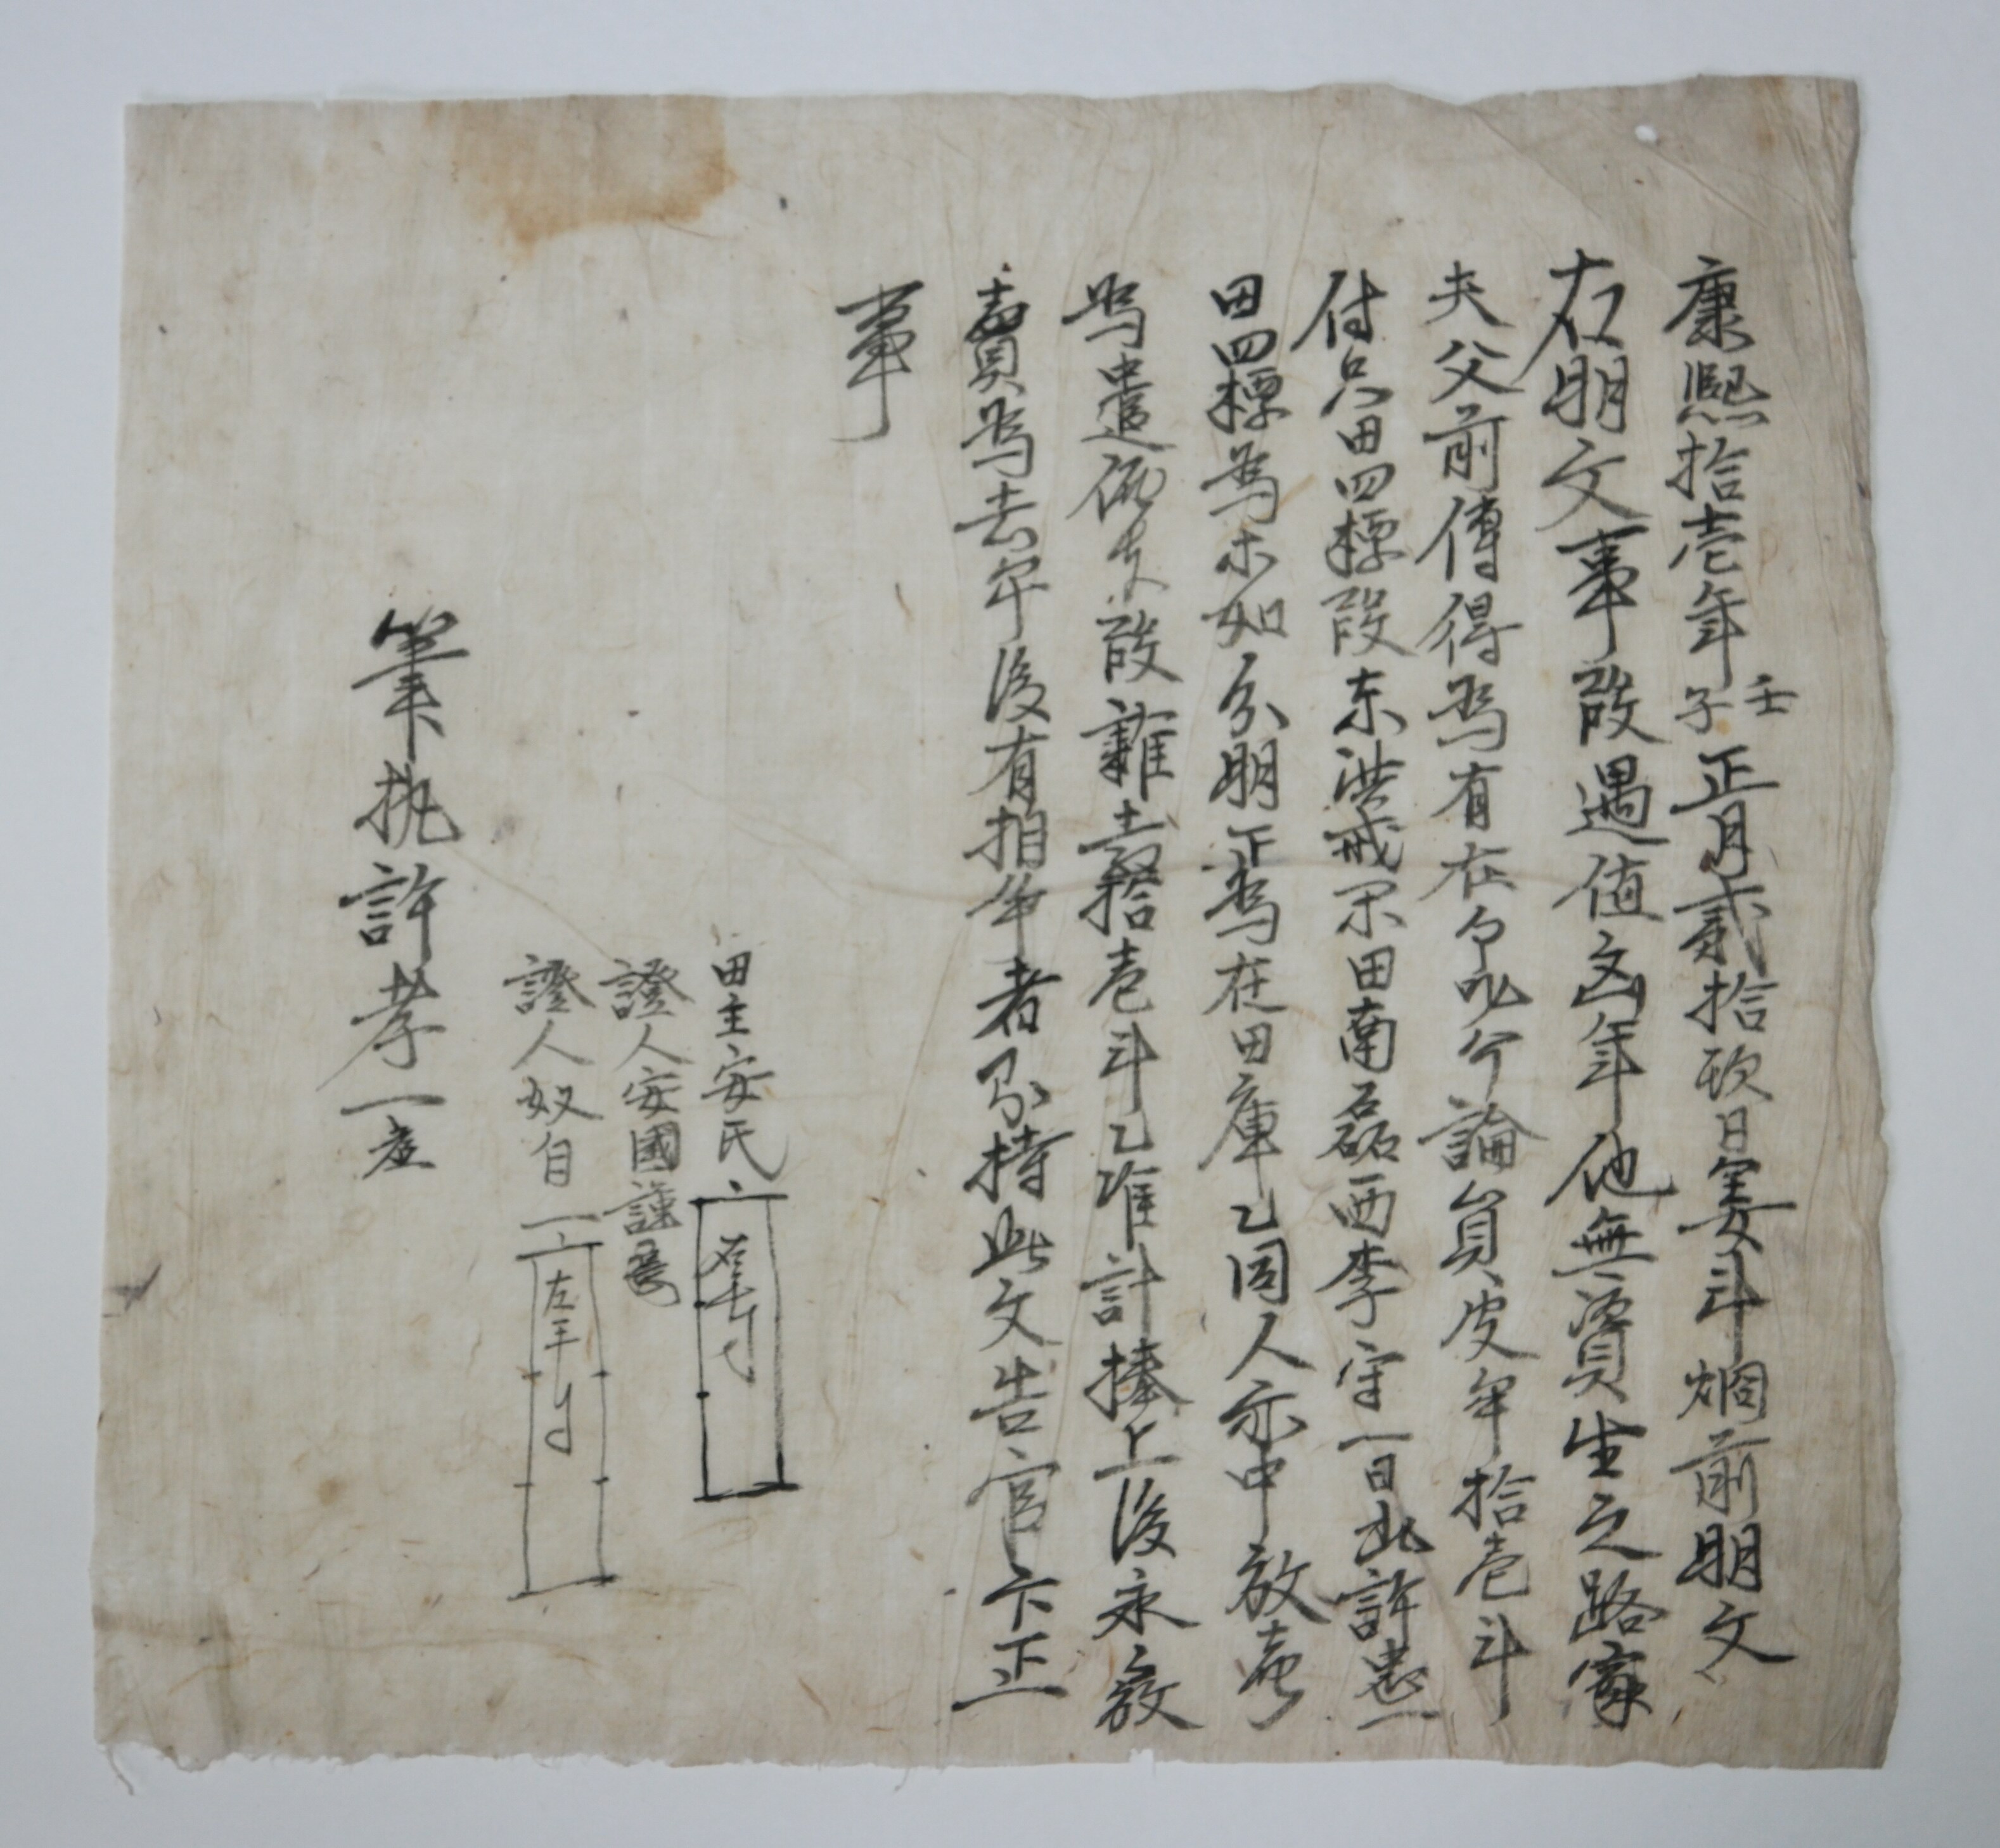 康熙拾壹年壬子正月貳拾玖日婁斗烱前明文
右明文事段遇値凶年他無資生之路家
夫父前傳得爲有在兮論員皮牟拾壹斗
付只田四標段東洪戒宗田南磊西李守一日北許忠一
田四標爲木如分明正爲在田庫乙同人亦中放賣
爲遣價文段雜皮拾壹斗乙准計捧上後永放
賣爲去乎後有相爭者以持此文告官卞正
事
田主安民右手寸
證人安國謹
證人奴自一左手寸
筆執許孝一